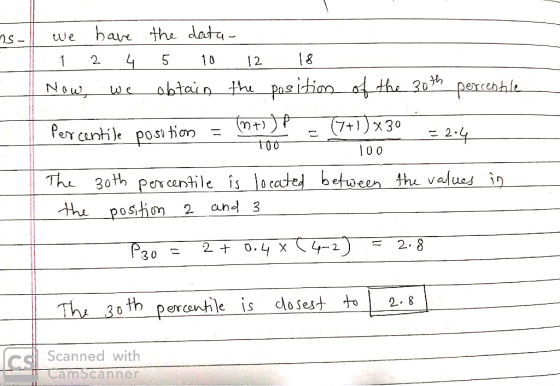 ns- we have the data-
1 2 4 5 10 12 18
Now, we obtain the position of the 30th percentile
Percentile position = (n+1)P/100 = (7+1)×30/100 = 2.4
The 30th percentile is located between the values in
the position 2 and 3
P30 = 2 + 0.4 × (4-2) = 2.8
The 30th percentile is closest to 2.8
CS Scanned with
CamScanner